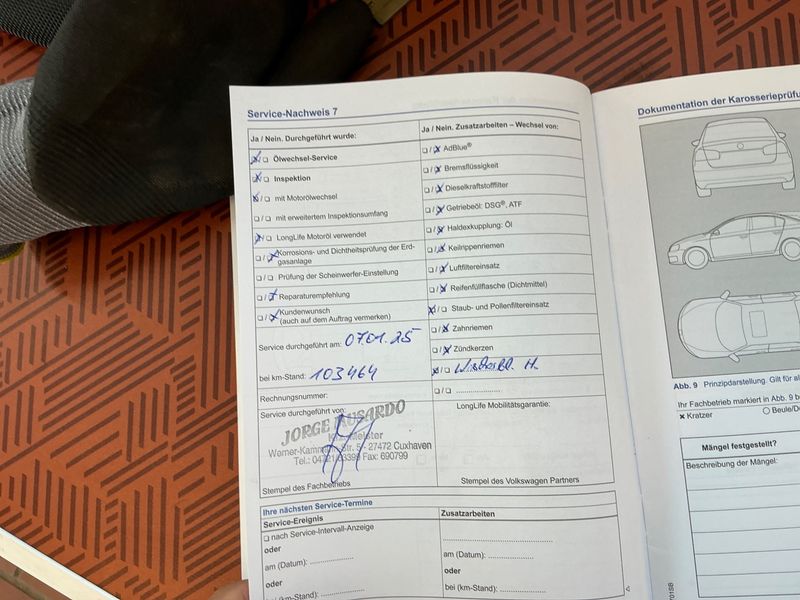 Service-Nachweis 7
Ja / Nein. Durchgeführt wurde:
Ölwechsel-Service
Inspektion
mit Motorölwechsel
mit erweitertem Inspektionsumfang
LongLife Motoröl verwendet
Korrosions- und Dichtheitsprüfung der Erd-
gasanlage
Prüfung der Scheinwerfer-Einstellung
Reparaturempfehlung
Kundenwunsch
(auch auf dem Auftrag vermerken)
Service durchgeführt am: 07.01.25
bei km-Stand: 103464
Rechnungsnummer:
Service durchgeführt von:
JORGE MUSARDO
Werner-Kammann-Str. 5 - 27472 Cuxhaven
Fax: 690799
Stempel des Fachbetriebs
Ja / Nein. Zusatzarbeiten – Wechsel von:
AdBlue®
Bremsflüssigkeit
Dieselkraftstofffilter
Getriebeöl: DSG®, ATF
Haldexkupplung: Öl
Keilrippenriemen
Luftfiltereinsatz
Reifenfüllflasche (Dichtmittel)
Staub- und Pollenfiltereinsatz
Zahnriemen
Zündkerzen
LongLife Mobilitätsgarantie:
Stempel des Volkswagen Partners
Ihre nächsten Service-Termine
Service-Ereignis
nach Service-Intervall-Anzeige
oder
am (Datum):
oder
bei (km-Stand):
Zusatzarbeiten
am (Datum):
oder
bei (km-Stand):
Dokumentation der Karosserieprüfu
Abb. 9 Prinzipdarstellung. Gilt für al
Ihr Fachbetrieb markiert in Abb. 9 b
Kratzer
Beule/D
Mängel festgestellt?
Beschreibung der Mängel: